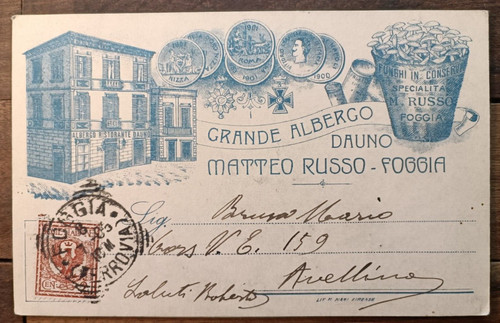 NIZZA
1901
ROMA
1901
1900
ALBERGO RISTORANTE DAUNO
FUNGHI IN CONSERVA
SPECIALITÀ
M. RUSSO
FOGGIA
GRANDE ALBERGO
DAUNO
MATTEO RUSSO - FOGGIA
FOGGIA
FERROVIA
Sig. Bruno Mario
Cors V. E. 159
Avellino
Saluti Roberto